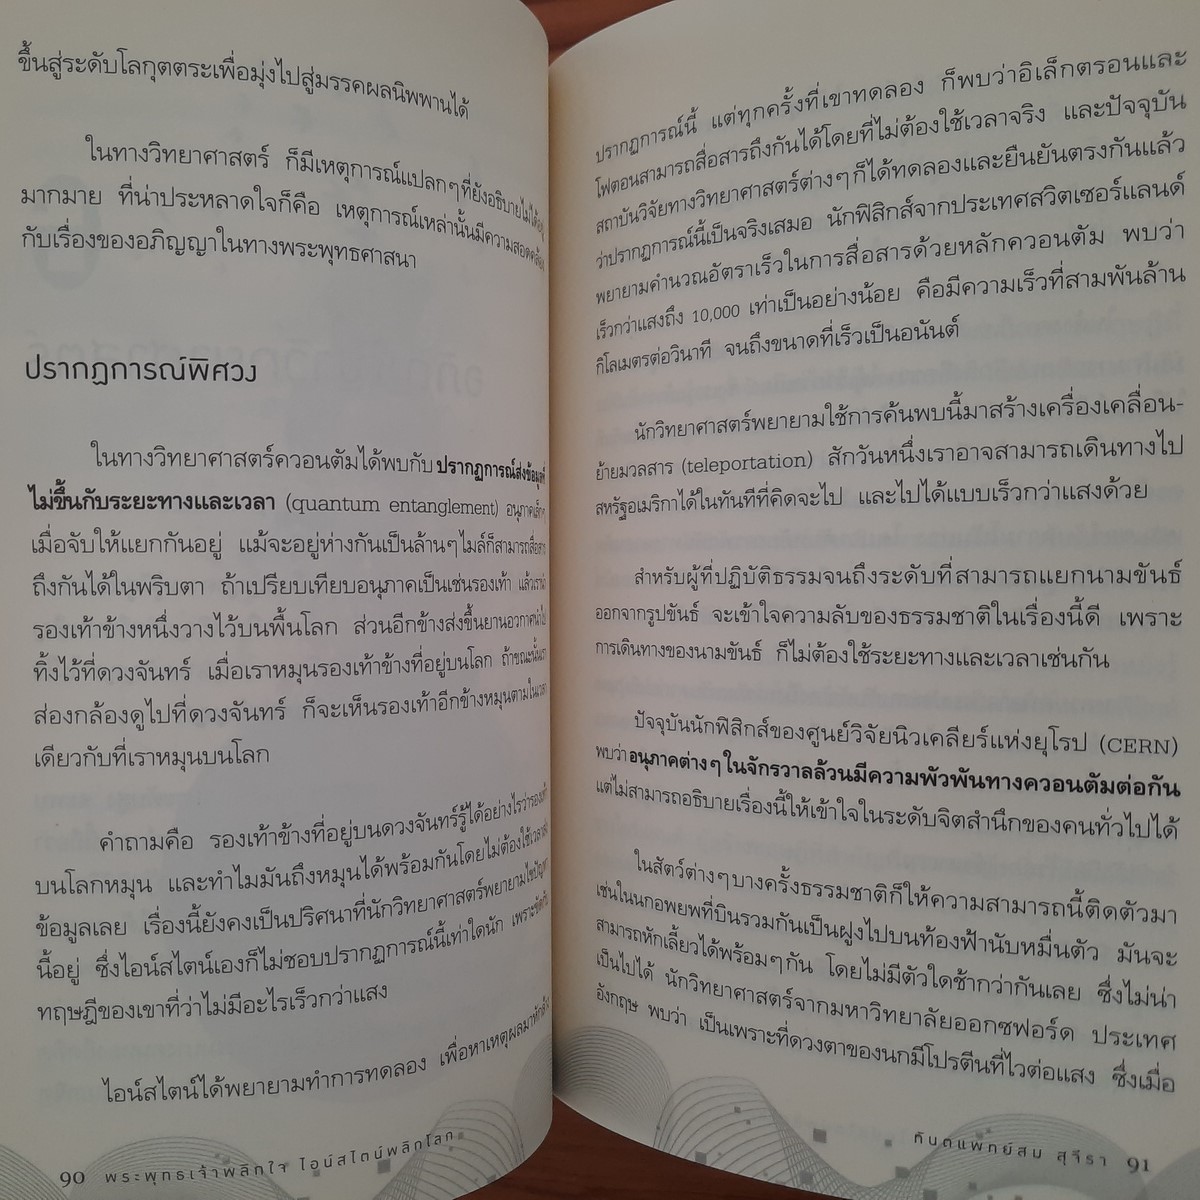 ขึ้นสู่ระดับโลกุตตระเพื่อมุ่งไปสู่มรรคผลนิพพานได้
ในทางวิทยาศาสตร์ ก็มีเหตุการณ์แปลกๆที่ยังอธิบายไม่ได้อยู่
มากมาย ที่น่าประหลาดใจก็คือ เหตุการณ์เหล่านั้นมีความสอดคล้อง
กับเรื่องของอภิญญาในทางพระพุทธศาสนา
ปรากฏการณ์พิศวง
ในทางวิทยาศาสตร์ควอนตัมได้พบกับปรากฏการณ์ส่งข้อมูลที่
ไม่ขึ้นกับระยะทางและเวลา (quantum entanglement) อนุภาคเล็กๆ
เมื่อจับให้แยกกันอยู่ แม้จะอยู่ห่างกันเป็นล้านๆไมล์ก็สามารถสื่อสาร
ถึงกันได้ในพริบตา ถ้าเปรียบเทียบอนุภาคเป็นเช่นรองเท้า แล้วเรานำ
รองเท้าข้างหนึ่งวางไว้บนพื้นโลก ส่วนอีกข้างส่งขึ้นยานอวกาศนำไป
ทิ้งไว้ที่ดวงจันทร์ เมื่อเราหมุนรองเท้าข้างที่อยู่บนโลก ถ้าขณะนั้นเรา
ส่องกล้องดูไปที่ดวงจันทร์ ก็จะเห็นรองเท้าอีกข้างหมุนตามในเวลา
เดียวกับที่เราหมุนบนโลก
คำถามคือ รองเท้าข้างที่อยู่บนดวงจันทร์รู้ได้อย่างไรว่ารองเท้า
บนโลกหมุน และทำไมมันถึงหมุนได้พร้อมกันโดยไม่ต้องใช้เวลาส่ง
ข้อมูลเลย เรื่องนี้ยังคงเป็นปริศนาที่นักวิทยาศาสตร์พยายามไขปัญหา
นี้อยู่ ซึ่งไอน์สไตน์เองก็ไม่ชอบปรากฏการณ์นี้เท่าใดนัก เพราะขัดกับ
ทฤษฎีของเขาที่ว่าไม่มีอะไรเร็วกว่าแสง
ไอน์สไตน์ได้พยายามทำการทดลอง เพื่อหาเหตุผลมาหักล้าง
90 พระพุทธเจ้าพลิกใจ ไอน์สไตน์พลิกโลก
ปรากฏการณ์นี้ แต่ทุกครั้งที่เขาทดลอง ก็พบว่าอิเล็กตรอนและ
โฟตอนสามารถสื่อสารถึงกันได้โดยที่ไม่ต้องใช้เวลาจริง และปัจจุบัน
สถาบันวิจัยทางวิทยาศาสตร์ต่างๆก็ได้ทดลองและยืนยันตรงกันแล้ว
ว่าปรากฏการณ์นี้เป็นจริงเสมอ นักฟิสิกส์จากประเทศสวิตเซอร์แลนด์
พยายามคำนวณอัตราเร็วในการสื่อสารด้วยหลักควอนตัม พบว่า
เร็วกว่าแสงถึง 10,000 เท่าเป็นอย่างน้อย คือมีความเร็วที่สามพันล้าน
กิโลเมตรต่อวินาที จนถึงขนาดที่เร็วเป็นอนันต์
นักวิทยาศาสตร์พยายามใช้การค้นพบนี้มาสร้างเครื่องเคลื่อน-
ย้ายมวลสาร (teleportation) สักวันหนึ่งเราอาจสามารถเดินทางไป
สหรัฐอเมริกาได้ในทันทีที่คิดจะไป และไปได้แบบเร็วกว่าแสงด้วย
สำหรับผู้ที่ปฏิบัติธรรมจนถึงระดับที่สามารถแยกนามขันธ์
ออกจากรูปขันธ์ จะเข้าใจความลับของธรรมชาติในเรื่องนี้ดี เพราะ
การเดินทางของนามขันธ์ ก็ไม่ต้องใช้ระยะทางและเวลาเช่นกัน
ปัจจุบันนักฟิสิกส์ของศูนย์วิจัยนิวเคลียร์แห่งยุโรป (CERN)
พบว่าอนุภาคต่างๆในจักรวาลล้วนมีความพัวพันทางควอนตัมต่อกัน
แต่ไม่สามารถอธิบายเรื่องนี้ให้เข้าใจในระดับจิตสำนึกของคนทั่วไปได้
ในสัตว์ต่างๆบางครั้งธรรมชาติก็ให้ความสามารถนี้ติดตัวมา
เช่นในนกอพยพที่บินรวมกันเป็นฝูงไปบนท้องฟ้านับหมื่นตัว มันจะ
สามารถหักเลี้ยวได้พร้อมๆกัน โดยไม่มีตัวใดช้ากว่ากันเลย ซึ่งไม่น่า
เป็นไปได้ นักวิทยาศาสตร์จากมหาวิทยาลัยออกซฟอร์ด ประเทศ
อังกฤษ พบว่า เป็นเพราะที่ดวงตาของนกมีโปรตีนที่ไวต่อแสง ซึ่งเมื่อ
ทันตแพทย์สม สุจีรา 91